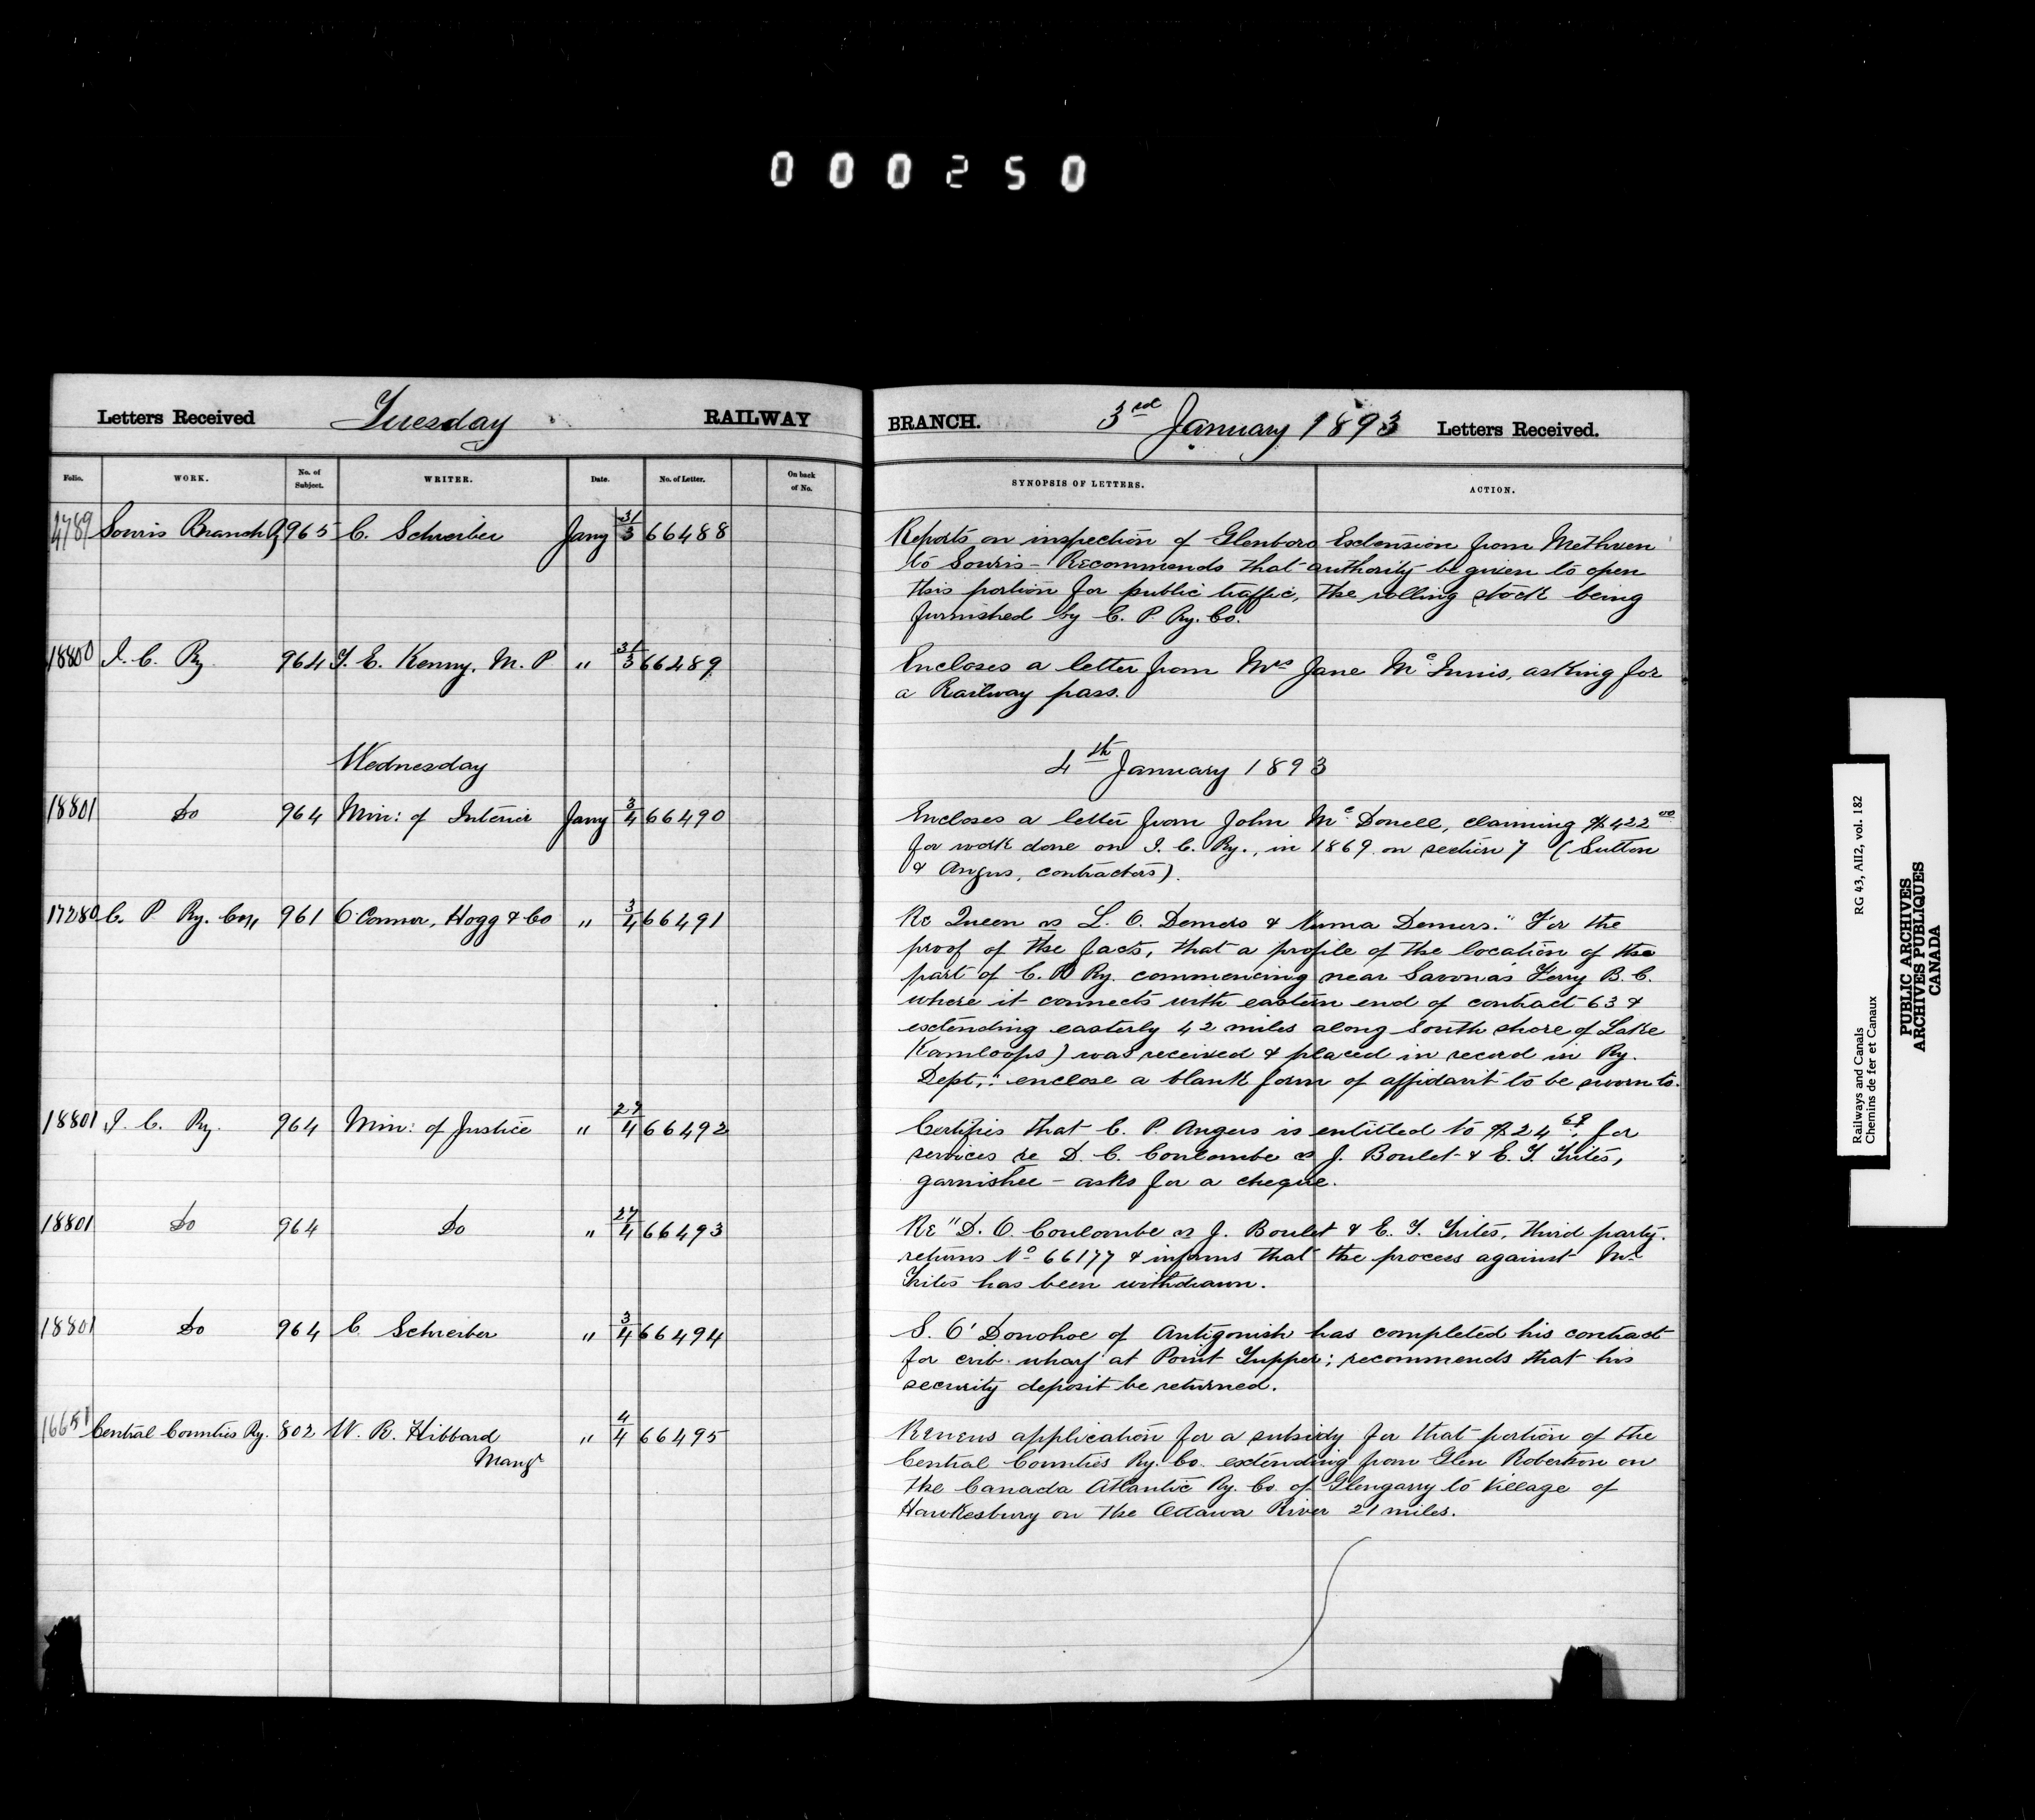 000250
Letters Received Tuesday RAILWAY
Folio. WORK. No. of Subject. WRITER. Date. No. of Letter. On back of No.
4789 Souris Branch Ry 965 C. Schreiber Jany 31/3 66488
18800 I. C. Ry 964 T. E. Kenny, M. P " 31/3 66489
Wednesday
18801 Do 964 Min: of Interior Jany 3/4 66490
17280 C. P. Ry. Coy 961 O'Connor, Hogg & Co " 3/4 66491
18801 I. C. Ry. 964 Min: of Justice " 27/4 66492
18801 Do 964 Do " 27/4 66493
18801 Do 964 C Schreiber " 3/4 66494
16651 Central Counties Ry. 802 W. R. Hibbard " 4/4 66495
Mangr
BRANCH. 3rd January 1893 Letters Received.
SYNOPSIS OF LETTERS. ACTION.
Reports on inspection of Glenboro Extension from Methven
to Souris - Recommends that authority be given to open
this portion for public traffic, the rolling stock being
furnished by C. P. Ry. Co.
Encloses a letter from Mrs Jane Mc Innis, asking for
a Railway pass.
4th January 1893
Encloses a letter from John Mc Donell, claiming $422 00
for work done on I. C. Ry., in 1869 on section 7 (Sutton
& Angus, contractors).
Re Queen vs L. O. Demers & Numa Demers." For the
proof of the facts, that a profile of the location of the
part of C. P Ry. commencing near Savona's Ferry B. C.
where it connects with eastern end of contract 63 &
extending easterly 42 miles along south shore of Lake
Kamloops) was received & placed in record in Ry.
Dept.," enclose a blank form of affidavit to be sworn to.
Certifies that C. P. Angers is entitled to $24 69, for
services re D. C. Coulombe vs J. Boulet & E. T. Trites,
garnishee - asks for a cheque.
Re "D. O. Coulombe vs J. Boulet & E. T. Trites, third party.
returns No 66177 & informs that the process against Mr
Trites has been withdrawn.
S. O'Donohoe of Antigonish has completed his contract
for crib wharf at Point Tupper; recommends that his
security deposit be returned.
Renews application for a subsidy for that portion of the
Central Counties Ry. Co. extending from Glen Robertson on
the Canada Atlantic Ry. Co. of Glengarry to Village of
Hawkesbury on the Ottawa River 21 miles.
Railways and Canals RG 43, AII2, vol. 182
Chemins de fer et Canaux
PUBLIC ARCHIVES
ARCHIVES PUBLIQUES
CANADA